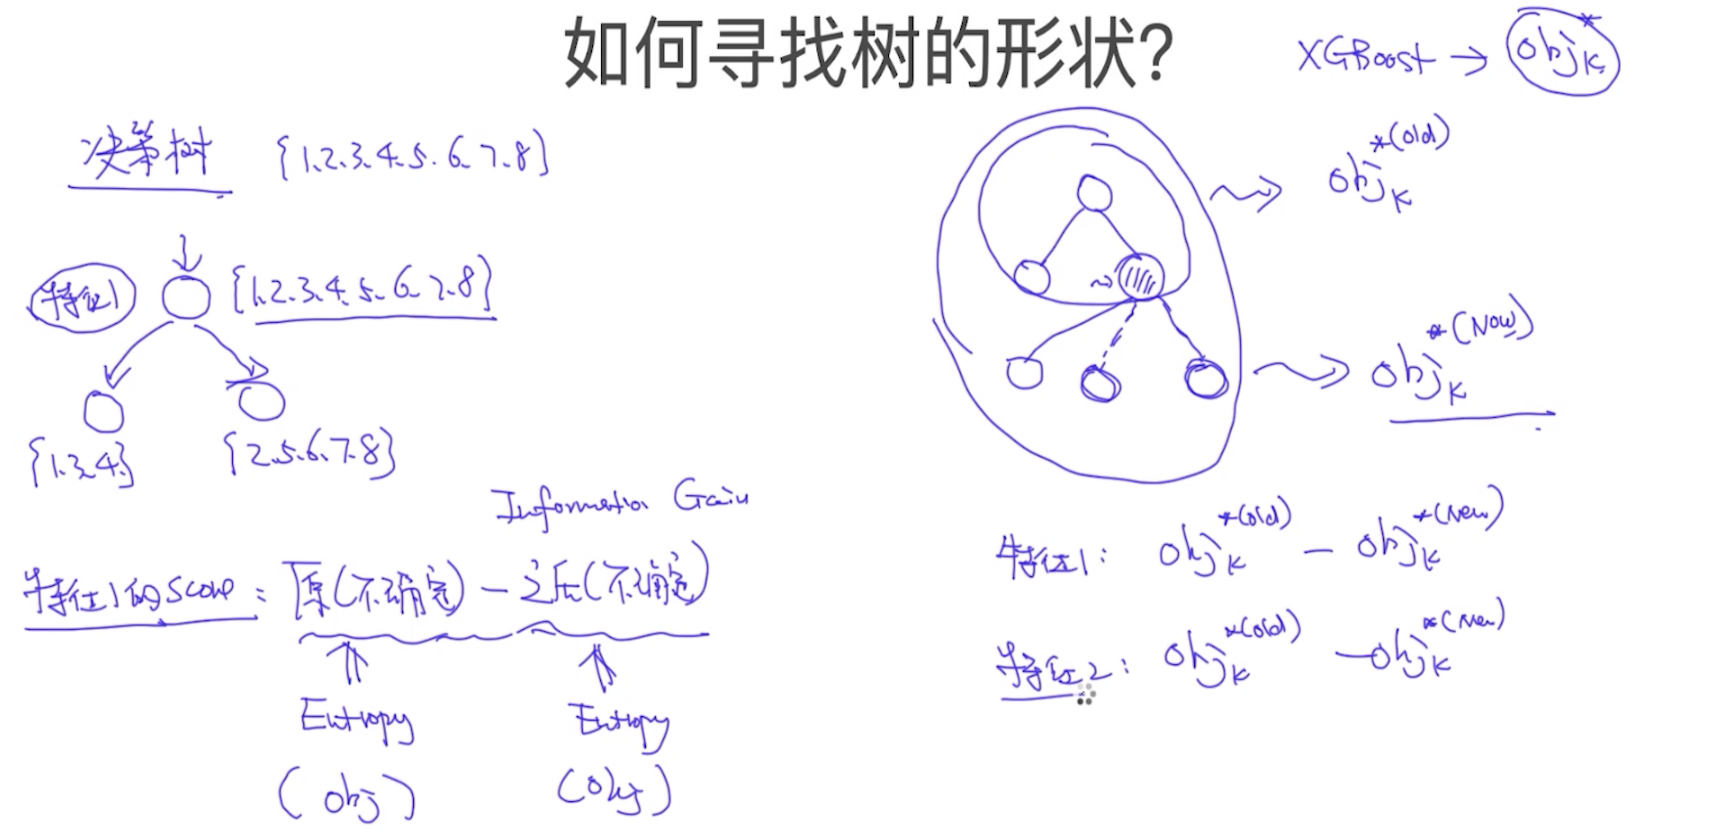 如何寻找树的形状?
XGBoost → obj*K
决策树 {1.2.3.4.5.6.7.8}
特征1 {1.2.3.4.5.6.7.8}
{1.3.4} {2.5.6.7.8}
Information Gain
特征1的Score: 原(不确定) - 之后(不确定)
Entropy Entropy
(obj) (obj)
obj*(old)K
obj*(Now)K
特征1: obj*(old)K - obj*(New)K
特征2: obj*(old)K - obj*(New)K